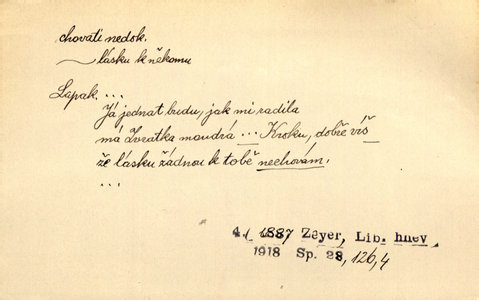 chovati nedok.
lásku k někomu
Lapak. ...
Já jednat budu, jak mi radila
má Zvratka moudrá ... Kroku, dobře víš
že lásku žádnou k tobě nechovám.
...
4./ 1887 Zeyer, Lib. hněv
1918 Sp. 28, 126,4